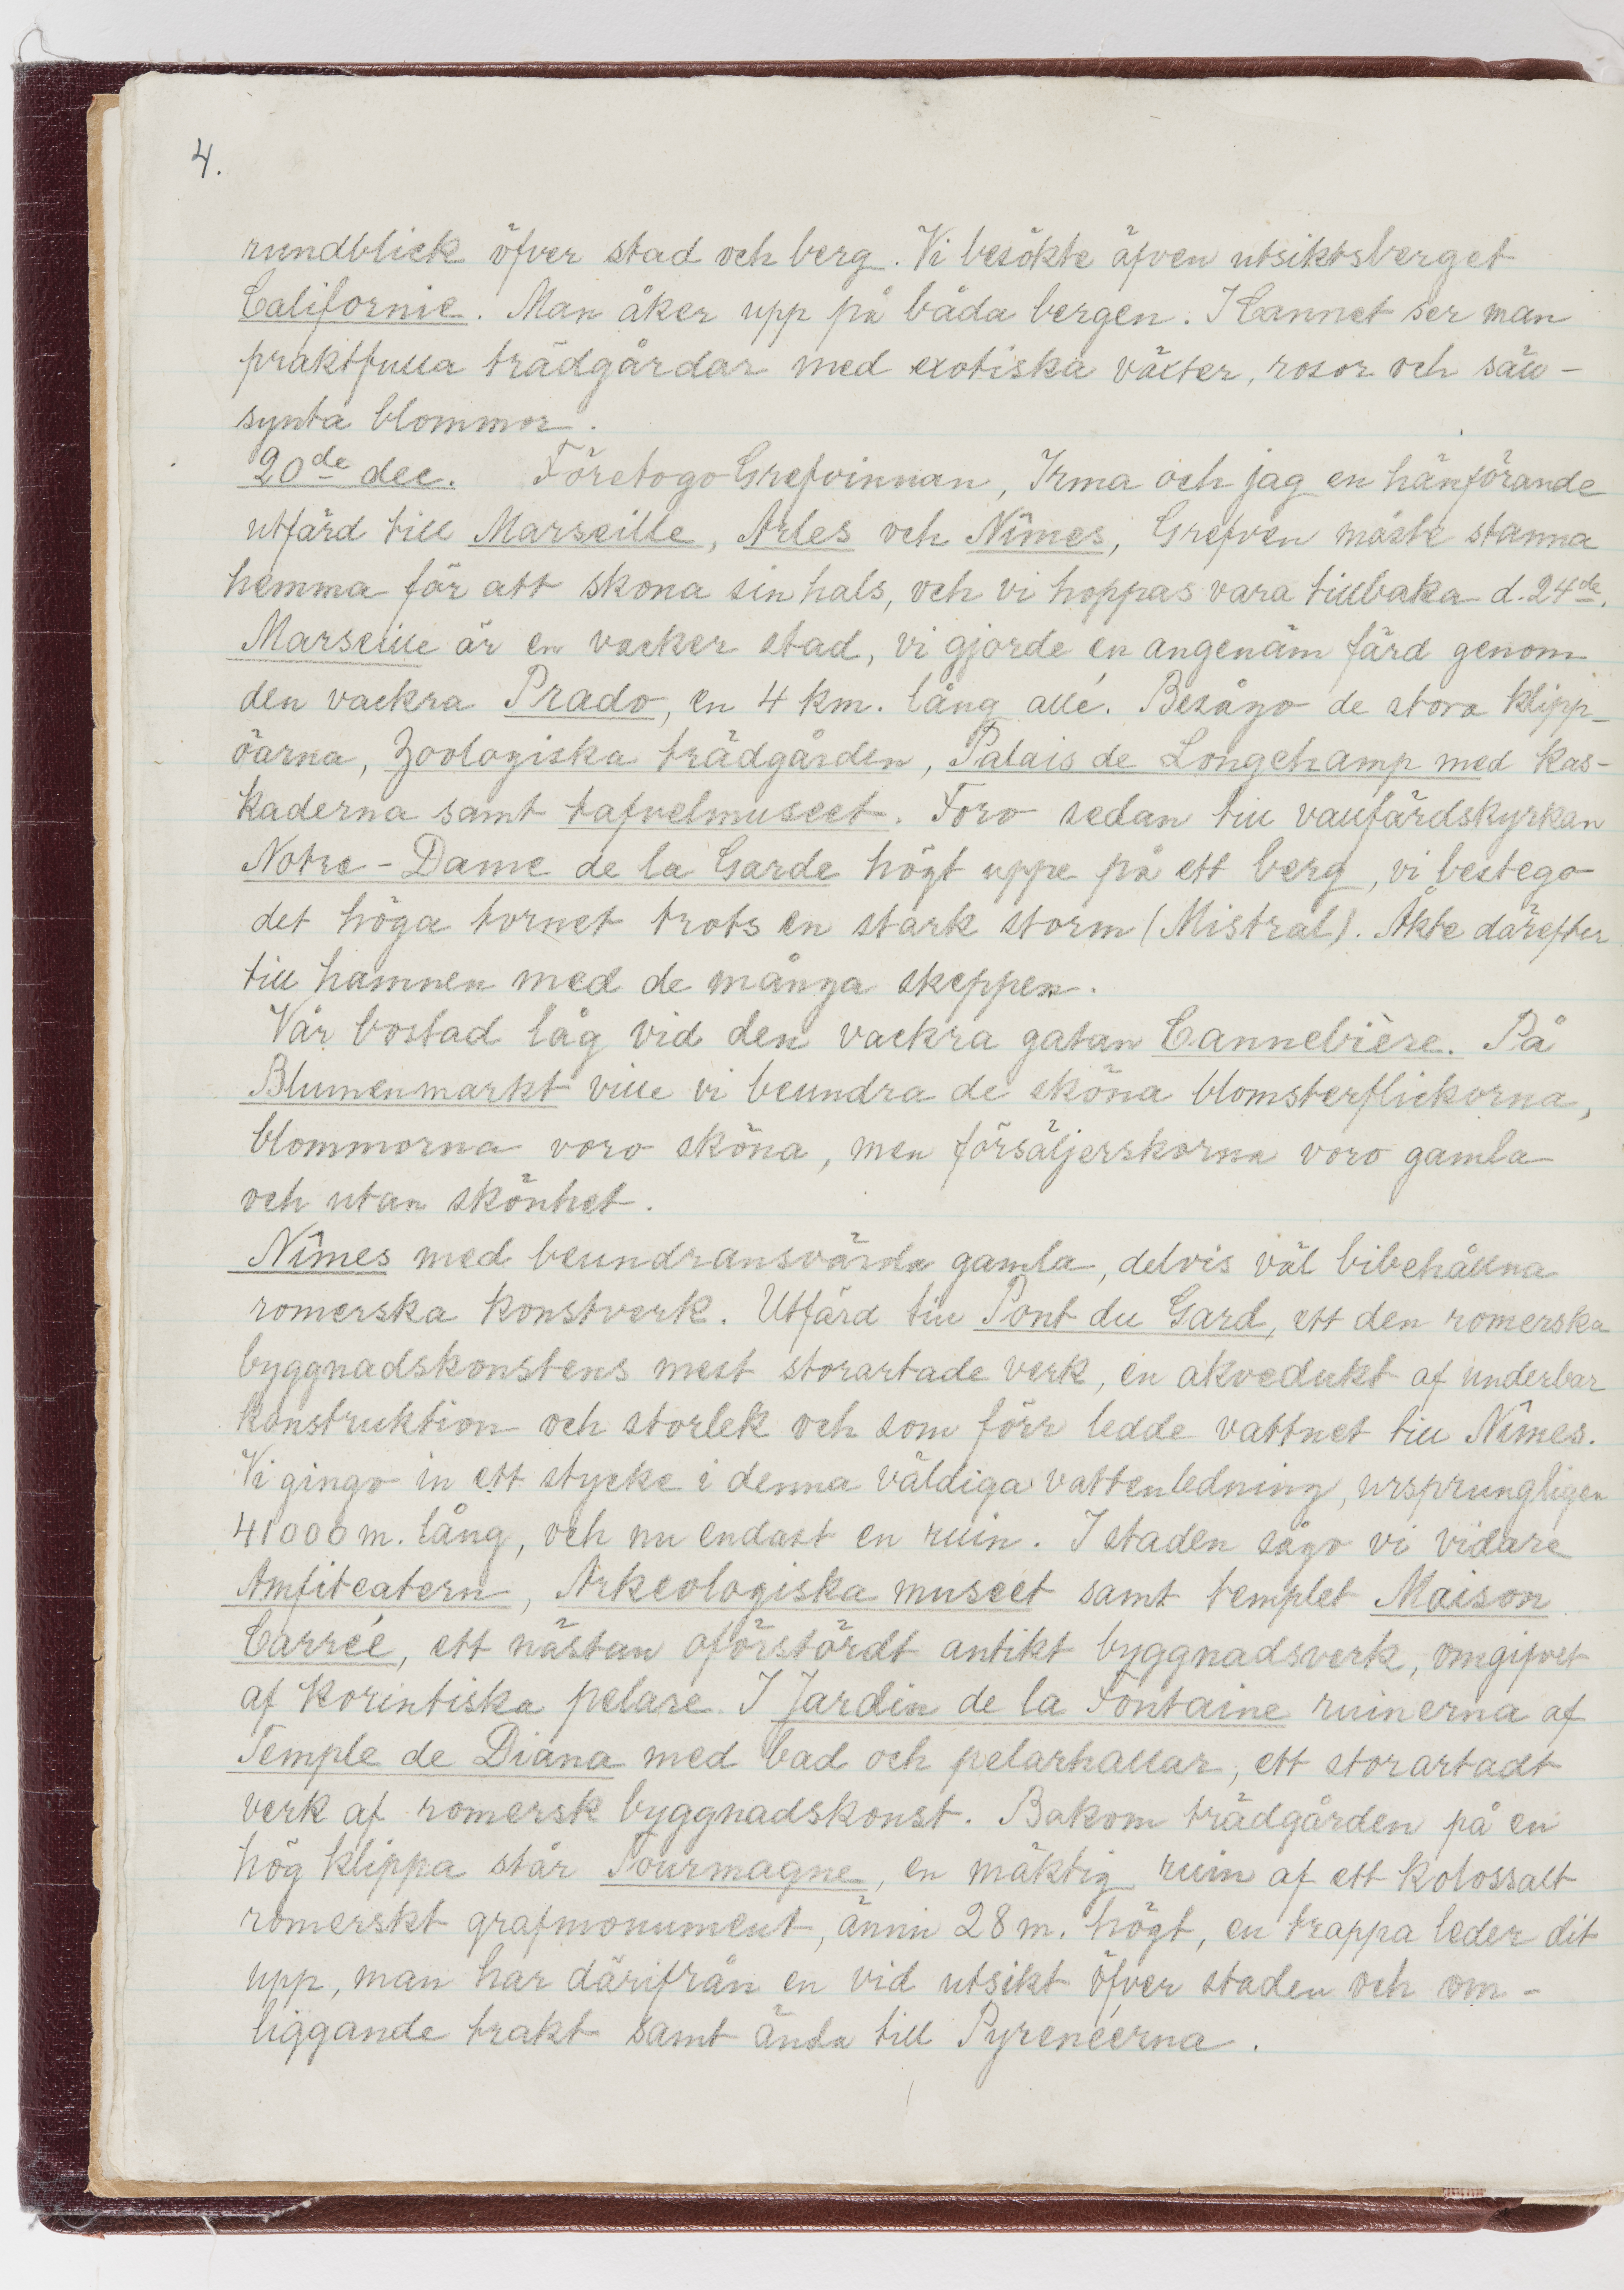 4.
rundblick öfver stad och berg. Vi besökte äfven utsiktsberget
Californie. Man åker upp på båda bergen. I Cannet ser man
praktfulla trädgårdar med exotiska växter, rosor och säll-
synta blommor.
20de dec. Företogo Grefvinnan, Irma och jag en hänförande
utfärd till Marseille, Arles och Nîmes, Grefven måste stanna
hemma för att skona sin hals, och vi hoppas vara tillbaka d. 24de.
Marseille är en vacker stad, vi gjorde en angenäm färd genom
den vackra Prado, en 4 km. lång allé. Besågo de stora klipp-
öarna, Zoologiska trädgården, Palais de Longchamp med kas-
kaderna samt tafvelmuseet. Foro sedan till vallfärdskyrkan
Notre-Dame de la Garde högt uppe på ett berg, vi bestego
det höga tornet trots en stark storm (Mistral). Åkte därefter
till hamnen med de många skeppen.
Vår bostad låg vid den vackra gatan Cannebière. På
Blumenmarkt ville vi beundra de sköna blomsterflickorna,
blommorna voro sköna, men försäljerskorna voro gamla
och utan skönhet.
Nîmes med beundransvärda gamla, delvis väl bibehållna
romerska konstverk. Utfärd till Pont du Gard, ett den romerska
byggnadskonstens mest storartade verk, en akvedukt af underbar
konstruktion och storlek och som förr ledde vattnet till Nîmes.
Vi gingo in ett stycke i denna väldiga vattenledning, ursprungligen
41000 m. lång, och nu endast en ruin. I staden sågo vi vidare
Amfiteatern, Arkeologiska museet samt templet Maison
Carrée, ett nästan oförstördt antikt byggnadsverk, omgifvet
af korintiska pelare. I Jardin de la Fontaine ruinerna af
Temple de Diana med bad och pelarhallar, ett storartadt
verk af romersk byggnadskonst. Bakom trädgården på en
hög klippa står Tourmagne, en mäktig ruin af ett kolossalt
romerskt grafmonument, ännu 28 m. högt, en trappa leder dit
upp, man har därifrån en vid utsikt öfver staden och om-
liggande trakt samt ända till Pyrenéerna.